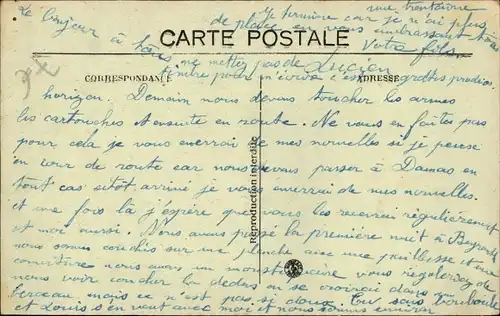 Le bonjour à tous
une trentaine
Je termine car je n'ai plus
de place en vous embrassant tous
Votre fils
Lucien
CARTE POSTALE
ne mettez pas de
timbre pour m'écrire c'est gratis
CORRESPONDANCE
ADRESSE
horizon. Demain nous devons toucher les armes
les cartouches et ensuite en route. Ne vous en faites pas
pour cela je vous enverrai de mes nouvelles si je peux
en cour de route car nous devons passer à Damas en
tout cas sitot arrivé je vous enverrai de mes nouvelles.
et une fois là j'espère que vous les recevrez régulièrement
et moi aussi. Nous avons passé la première nuit à Beyrouth
nous sommes couchés sur une planche avec une paillasse et une
couverture nous avons un vous rigoleriez de
nous voir coucher là dedans on se croirait dans un
berceau mais ce n'est pas si doux. Tu sais
et Louis s'en vont avec moi et nous sommes environ
Reproduction interdite